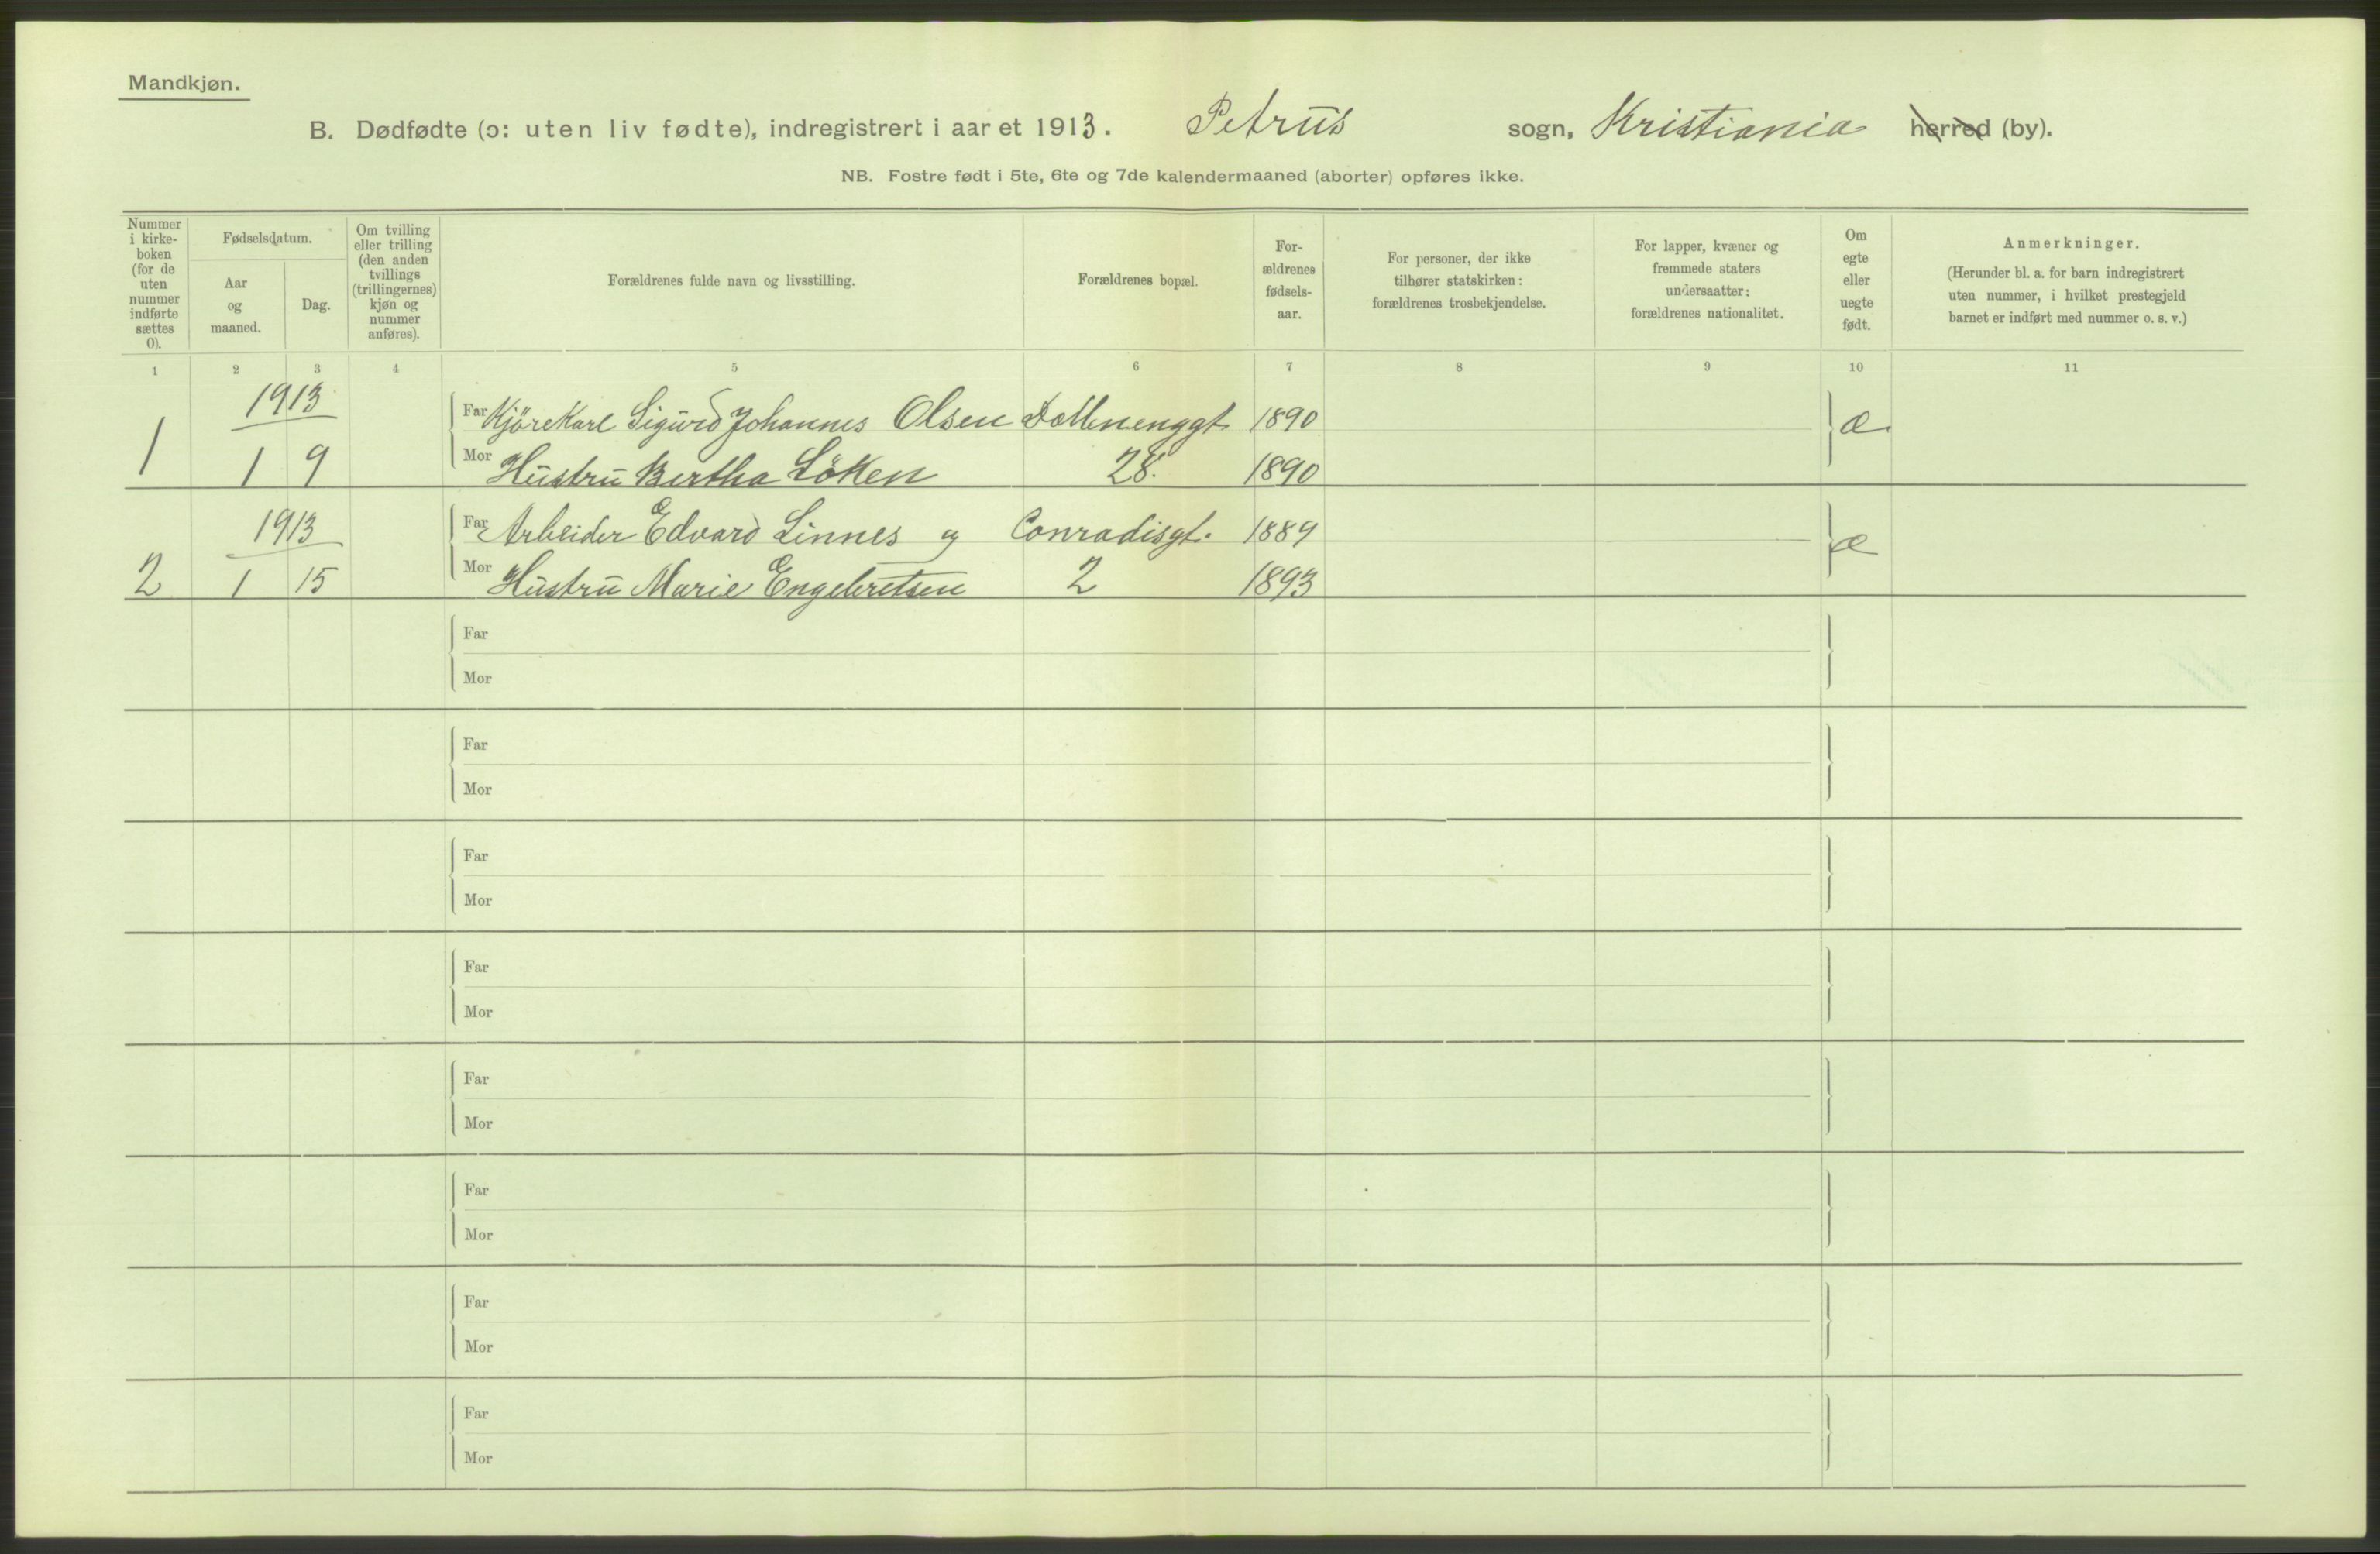 Mandkjøn.
B. Dødfødte (ɔ: uten liv fødte), indregistrert i aaret 1913. Petrus sogn, Kristiania herred (by).
NB. Fostre født i 5te, 6te og 7de kalendermaaned (aborter) opføres ikke.
Nummer i kirke-boken (for de uten nummer indførte sættes 0).
Fødselsdatum.
Aar og maaned.
Dag.
Om tvilling eller trilling (den anden tvillings (trillingernes) kjøn og nummer anføres).
Forældrenes fulde navn og livsstilling.
Forældrenes bopæl.
For-ældrenes fødsels-aar.
For personer, der ikke tilhører statskirken: forældrenes trosbekjendelse.
For lapper, kvæner og fremmede staters undersaatter: forældrenes nationalitet.
Om egte eller uegte født.
Anmerkninger.
(Herunder bl. a. for barn indregistrert uten nummer, i hvilket prestegjeld barnet er indført med nummer o. s. v.)
1 2 3 4 5 6 7 8 9 10 11
1913
Far Kjørekarl Sigurd Johannes Olsen 1890 æ.
1 1 9 Mor Hustru Bertha Löken 28. 1890
1913
Far Arbeider Edvard Linnes og Conradisgt. 1889 æ
2 1 15 Mor Hustru Marie Engebretsen 2 1893
Far
Mor
Far
Mor
Far
Mor
Far
Mor
Far
Mor
Far
Mor
Far
Mor
Far
Mor